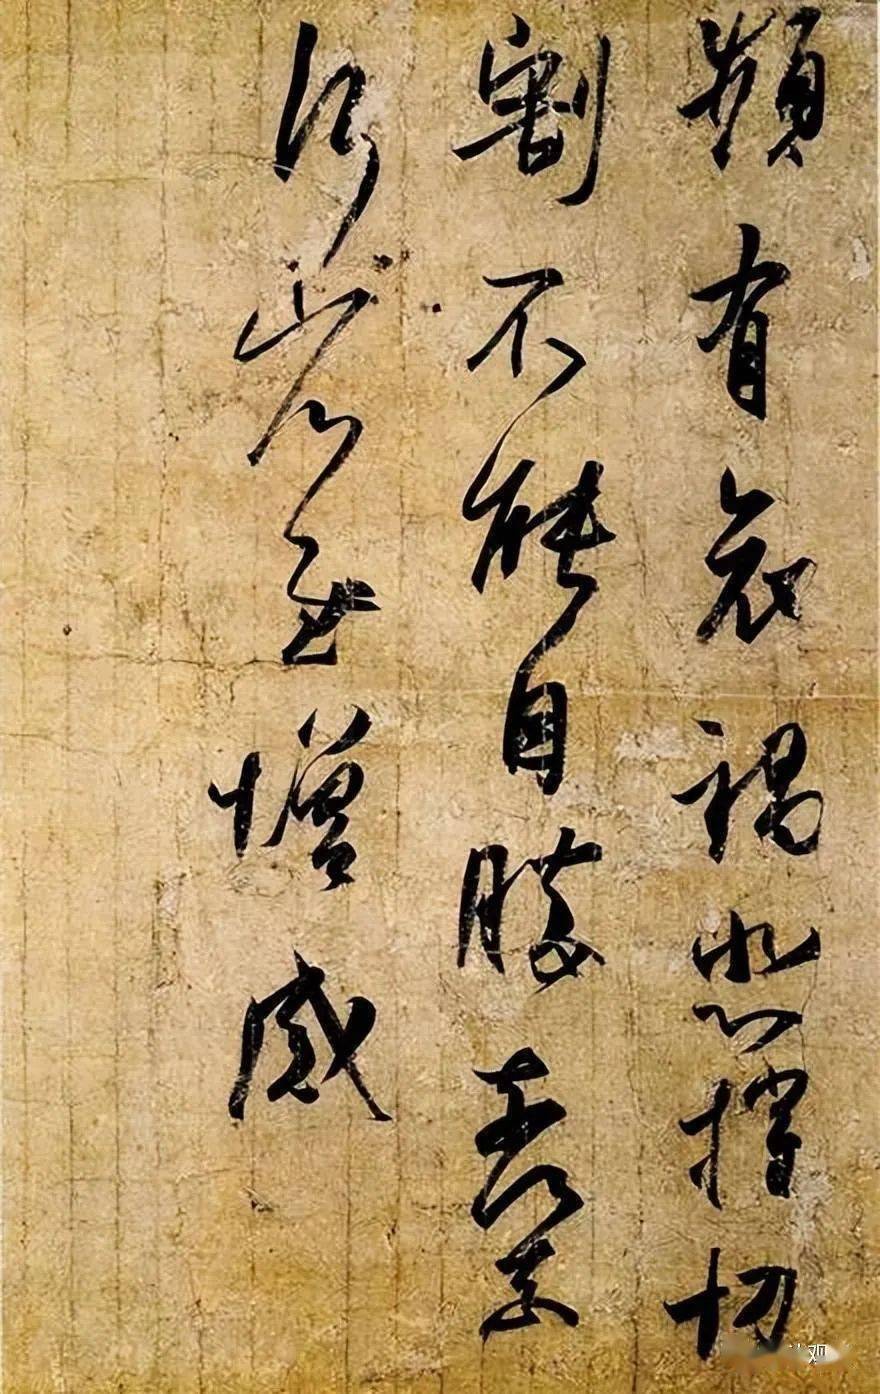 頻有哀禍悲摧切
割不能自勝奈何奈
何省慰增感
观